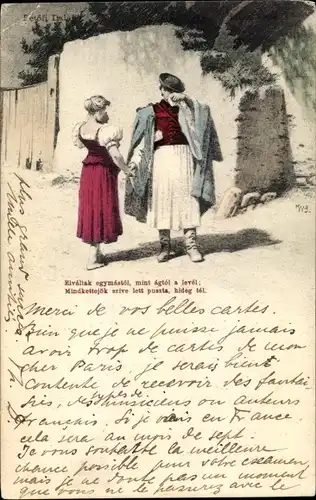 Petőfi Dalai
Elváltak egymástól, mint ágtól a levél;
Mindkettejök szive lett puszta, hideg tél.
Merci de vos belles cartes.
Bien que je ne puisse jamais
avoir trop de cartes de mon
cher Paris, je serais bien
contente de recevoir des fantai-
sies, des types de musiciens ou auteurs
français. Si je vais en France
cela sera au mois de sept.
Je vous souhaite la meilleure
chance possible pour votre examen
mais je ne doute pas un moment
que vous ne le passiez avec le
plus grand succès